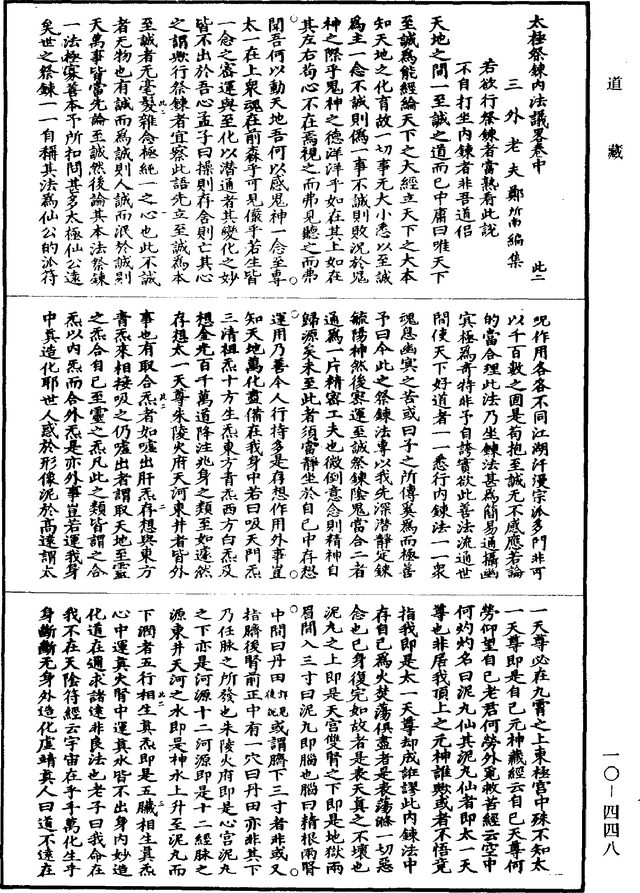 道藏
太極祭鍊內法議畧卷中
三外老夫鄭所南編集　此二
若欲行祭鍊者當熟看此說
不自打坐內鍊者非吾道侶
天地之間一至誠之道而已中庸曰唯天下
至誠爲能經綸天下之大經立天下之大本
知天地之化育故一切事无大小悉以至誠
爲主一念不誠則僞一事不誠則敗況於鬼
神之際乎鬼神之德洋洋乎如在其上如在
其左右苟心不在焉視之而弗見聽之而弗
聞吾何以動天地吾何以感鬼神一念至專
太一在上衆魂在前森乎可見儼乎若生皆
一念之密運與至化以潜通者其變化之妙
皆不出於吾心孟子曰操則存舍則亡其心
之謂歟行祭鍊者宜察此語先立至誠爲本
至誠者无毫髮雜念極純一之心也此不誠
者无物也有誠而爲誠則人誠而泯於誠則
天萬事皆當先論至誠然後論其本法祭鍊
一法極寡善本予所扣問甚多太極仙公遠
矣世之祭鍊一一自稱其法爲仙公的派符
呪作用各各不同江湖汗漫宗派多門非可
以千百數之固是苟抱至誠无不感應若論
的當合理此法乃坐鍊法甚爲簡易通攝幽
冥極爲奇特非予自誇實欲此善法流通世
間使天下好道者一一悉行內鍊法一一衆
魂息幽冥之苦或曰子之所傳奚爲而極善
予曰今此之祭鍊法專以我先深潜靜定鍊
毓陽神然後密運至誠祭鍊陰鬼當合二者
通爲一片精密工夫也微倒意念則精神自
歸源矣未至此者須當靜坐於自己中存想
運用乃善今人行持多是存想作用外事豈
知天地萬化盡備在我身中若曰吸天門炁
三清祖炁十方生炁東方青炁西方白炁及
想金光百千萬道降注兆身之類至如遙然
存想太一天尊朱陵火府天河東井者皆外
事也有取合炁者如噓出肝炁存想與東方
青炁來相接吸之仍噓出者謂取天地至靈
之炁合自己至靈之炁凡此之類皆謂之合
炁以內炁而合外炁是亦外事豈若運我身
中眞造化耶世人惑於形像泥於高遠謂太
一天尊必在九霄之上東極宮中殊不知太
一天尊即是自己元神藏經云自己天尊何
勞仰望自己老君何勞外覓救苦經云空中
何灼灼名曰泥丸仙其泥丸仙者即太一天
尊也非居我頂上之元神誰歟或者不悟竟
指我即是太一天尊却成誑謬此內鍊法中
存自己爲火焚蕩俱盡者是表蕩滌一切惡
念也已身復完如故者是表天真之不壞也
泥丸之上即是天宮雙腎之下即是地獄兩
眉間入三寸曰泥丸即腦也腦曰精根兩腎
中間曰丹田或謂臍下三寸者非或又
指臍後腎前正中有一穴曰丹田亦非其下
乃任脉之所發也朱陵火府即是心宮泥丸
之下亦是河源十二河源即是十二經脉之
源東井天河之水即是神水上升至泥丸而
下潤者五行相生眞炁即是五臟相生眞炁
心中運眞火腎中運眞水皆不出身內妙造
化道在邇求諸遠非良法也老子曰我命在
我不在天陰符經云宇宙在乎手萬化生乎
身斷斷无身外造化虛靖眞人曰道不遠在
一〇—四四八